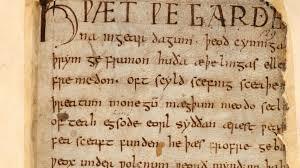 HǷÆT ǷE GARDE
na ingear dagum. þeod cyninga
þrym ge frunon huða æþelingas elle
fremedon. oft scyld scefing sceaþe
þreatum monegū mægþum meodo se
of teah egsode eorl syððan ærest ƿear
fea sceaft funden he þæs frofre geba
ƿeox under ƿolcnum ƿeorð myndum þa